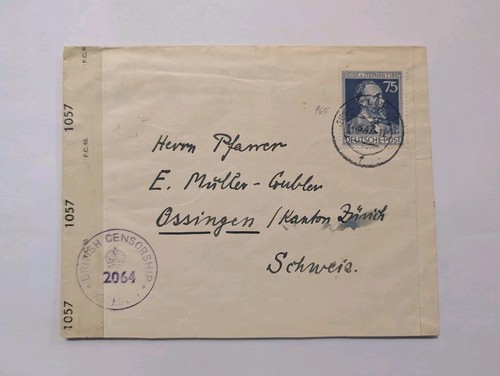 P.C. 90.
1057
P.C. 90.
1057
1057
75
DEUTSCHE POST
Herrn Pfarrer
E. Müller-Gubler
Ossingen / Kanton Zürich
Schweiz.
BRITISH CENSORSHIP
2064